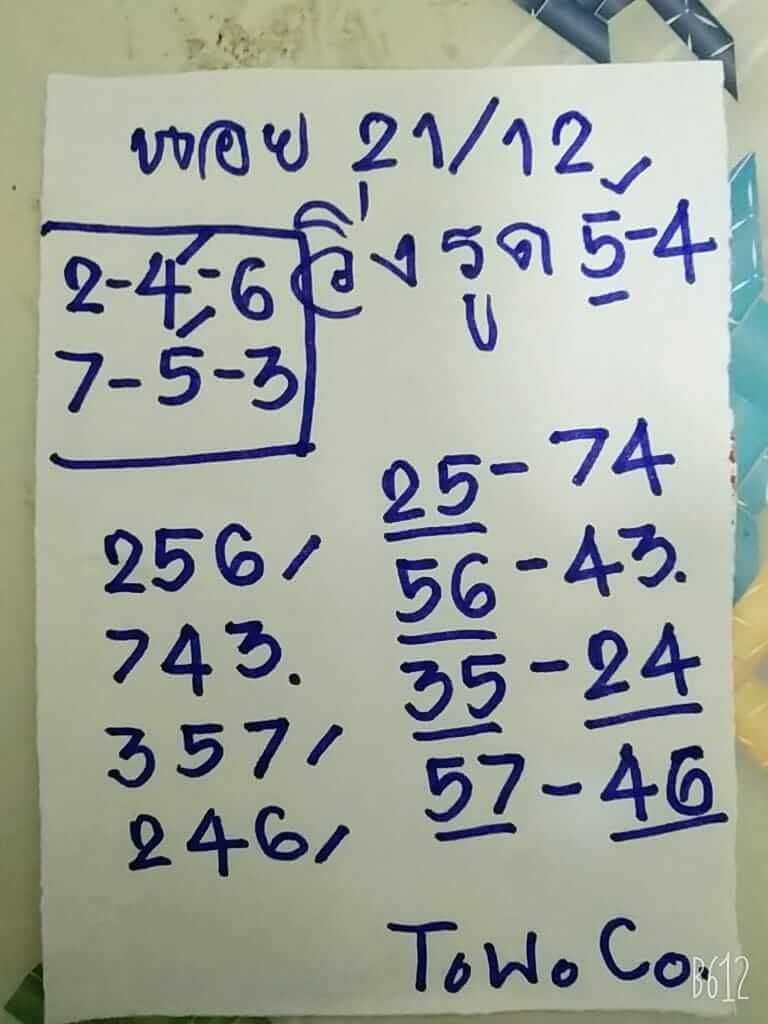 หวย 21/12
2-4-6
7-5-3
วิ่ง รูด 5-4
25-74
56-43.
35-24
57-46
256/
743.
357/
246/
ToWo Co.
B612